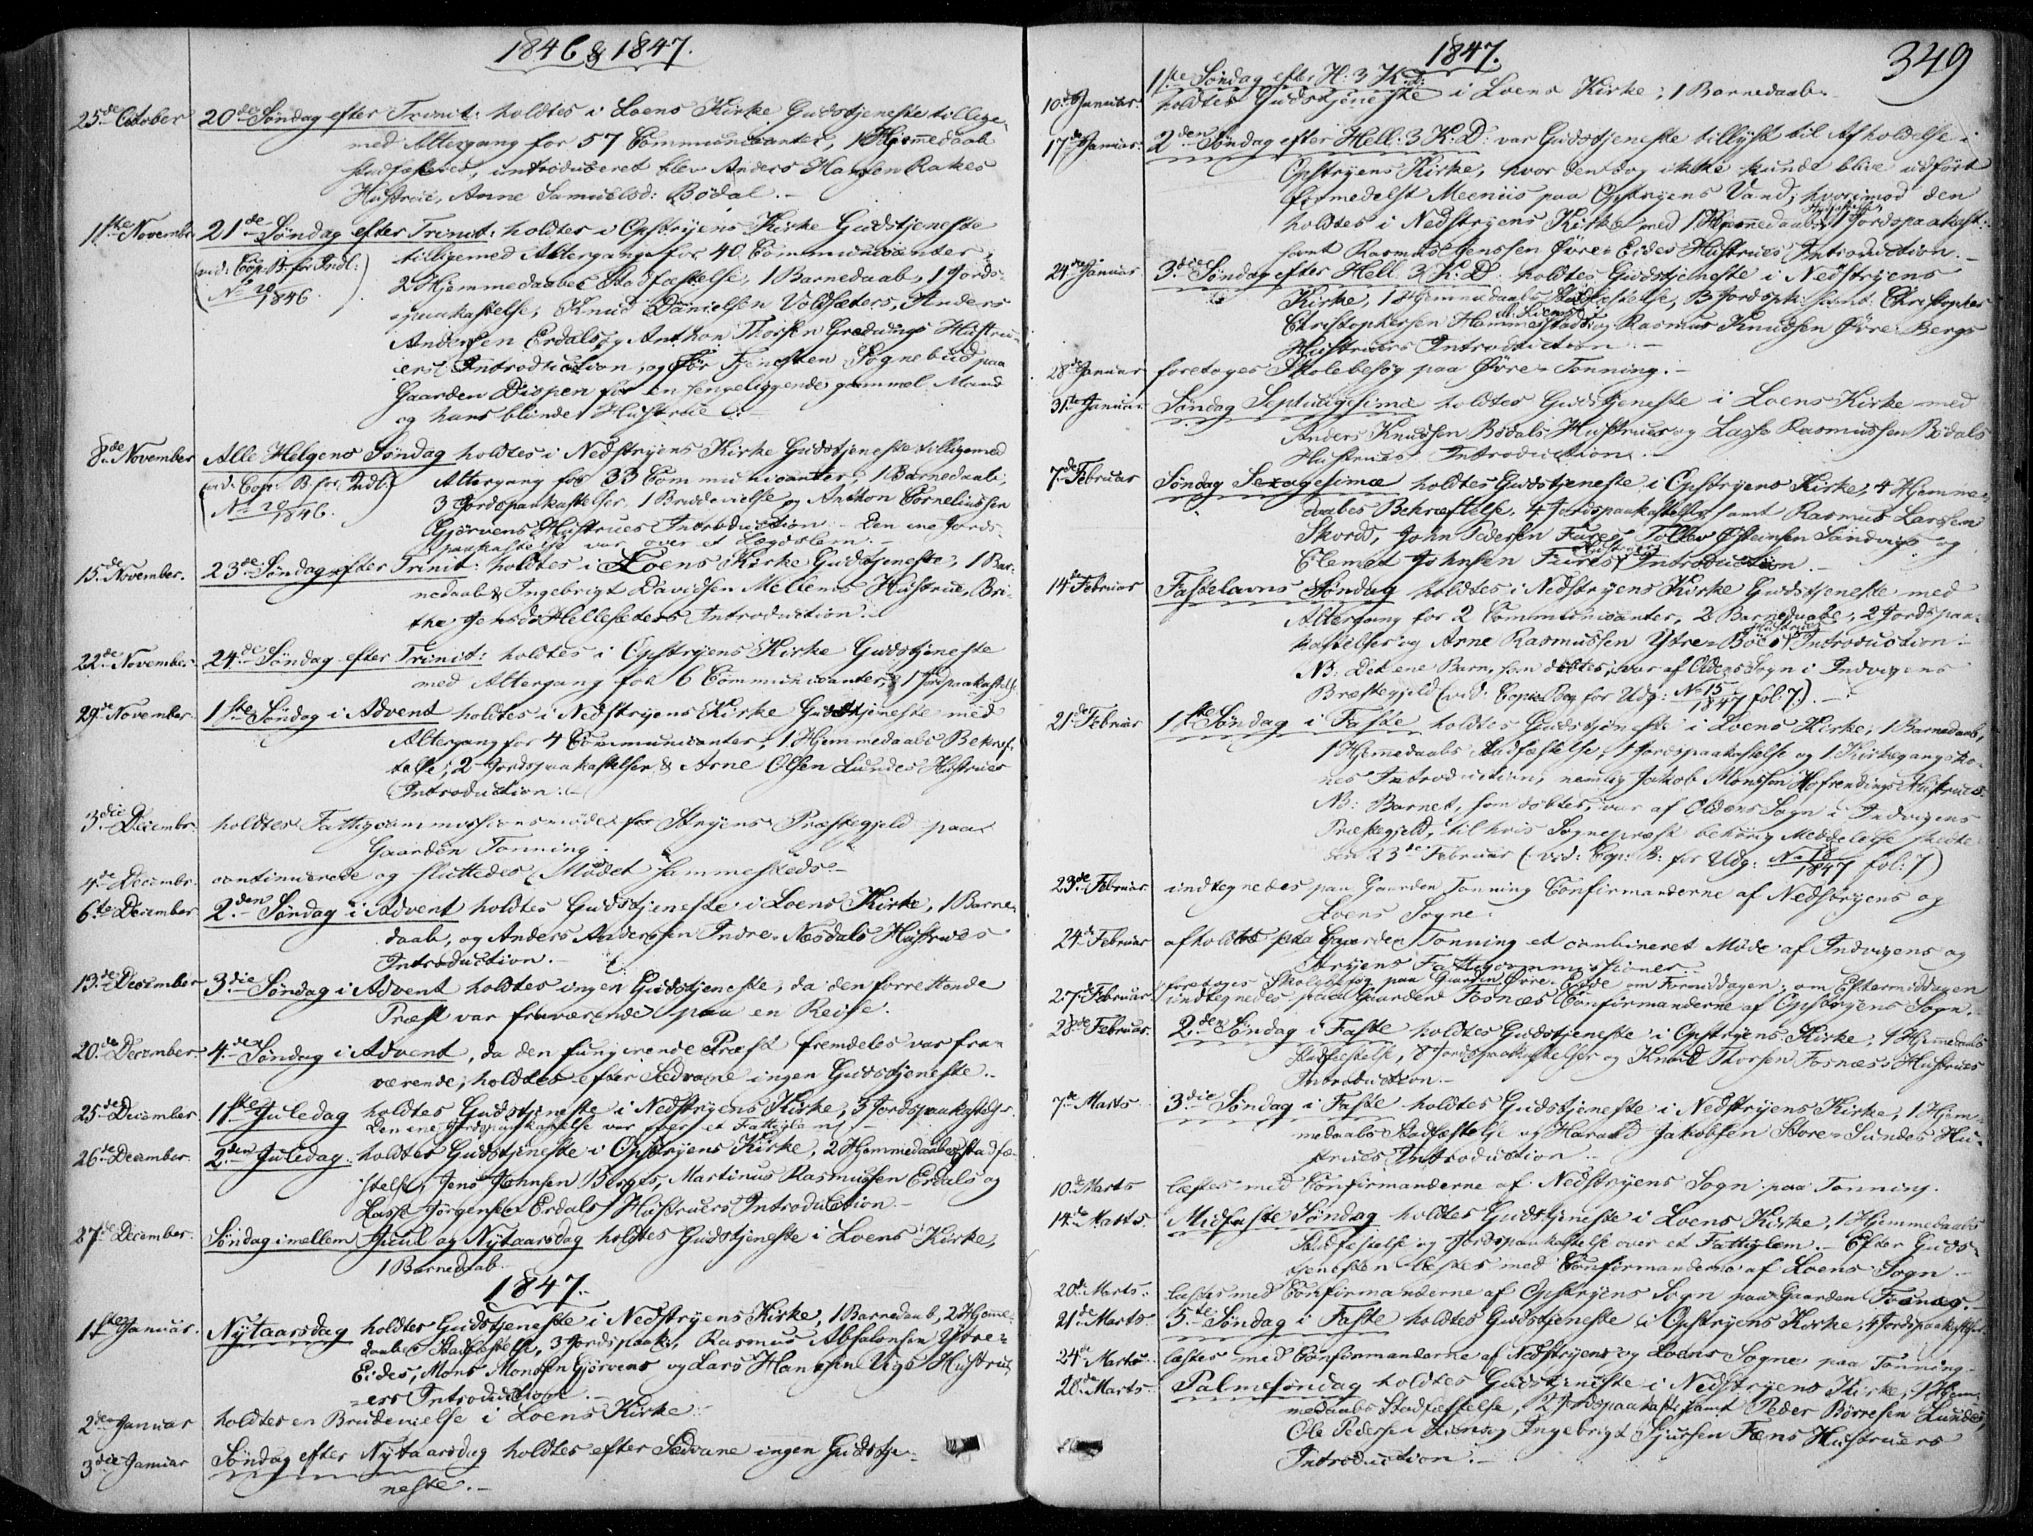 1846 & 1847.
25de October 20de Søndag efter Trinit: holdtes i Loens Kirke Gudstjeneste tillige-
med Altergang for 57 Communicanter, 1 Hjemmedaab
stadfæsted, introduceret blev Anders Hansen Rakes
Hustrue, Anne Samuelsd: Bødal.-
1ste November 21de Søndag efter Trinit: holdtes i Opstryens Kirke Gudstjeneste
(vid: Cop: B. for Indl: tilligemed Altergang for 40 Communicanter,
No 20/1846.) 2 Hjemmedaabes Stadfæstelse, 1 Barnedaab, 1 Jords-
paakastelse, Knud Danielsen Voldsæters, Anders
Andersen Erdals og Anthon Thorsen Grødungs Hustru-
ers Introduction, og før Tjenesten Sognebud paa
Gaarden Dispen for en sengeliggende gammel Mand
og hans blinde Hustrue.-
8de November Alle Helgens Søndag holdtes i Nedstryens Kirke Gudstjeneste tilligemed
(vid: Cop: B. for Indl: Altergang for 33 Communicanter, 1 Barnedaab,
No 20/1846.) 3 Jordspaakastelser, 1 Brudevielse og Anthon Corneliussen
Gjørvens Hustrues Introduction.- Den ene Jords-
paakastelse var over et Lægdslem.-
15de November. 23de Søndag efter Trinit: holdtes i Loens Kirke Gudstjeneste, 1 Bar-
nedaab & Ingebrigt Davidsen Mellems Hustrue, Bri-
the Jensd: Helleseters Introduction.-
22de November 24de Søndag efter Trinit: holdtes i Opstryens Kirke Gudstjeneste
med Altergang for 6 Communicanter, & 1 Jordpaakastelse
29de November. 1ste Søndag i Advent holdtes i Nedstryens Kirke Gudstjeneste med
Altergang for 4 Communicanter, 1 Hjemmedaabs Bekræf-
telse, 2 Jordspaakastelser & Arne Olsen Lundes Hustrues
Introduction.-
3die Decembr. holdtes Fattigcommissionsmøde for Stryens Præstegjeld paa
Gaarden Tonning.
4de Decembr. continuerede og sluttedes Mødet sammesteds.-
6te December 2den Søndag i Advent holdtes Gudstjeneste i Loens Kirke, 1 Barne-
daab, og Anders Andersen Indre-Næsdals Hustrues
Introduction.-
13de December 3die Søndag i Advent holdtes ingen Gudstjeneste, da den forrettende
Præst var fraværende paa en Reise.
20de December 4den Søndag i Advent, da den fungerende Præst fremdeles var fra-
værende, holdtes efter Sædvane ingen Gudstjeneste.-
25de December. 1ste Juledag holdtes Gudstjeneste i Nedstryens Kirke, 3 Jordspaakastelser.
Den ene Jordspaakastelse var over et Fattiglem.-
26de December. 2den Juledag. holdtes Gudstjeneste i Opstryens Kirke, 2 Hjemmedaabes Stadfæ-
stelse, Jens Johnsen Bergs, Martinus Rasmussen Erdals og
Lasse Jørgensen Erdals Hustruers Introduction.-
27de December. Søndag imellem Juul og Nytaarsdag holdtes Gudstjeneste i Loens Kirke,
1 Barnedaab.
1847.
1ste Januar. Nytaarsdag holdtes Gudstjeneste i Nedstryens Kirke, 1 Barnedaab, 2 Hjemme-
daabes Stadfæstelse, 3 Jordspaak:, Rasmus Absalonsen Ytre-
Eides, Mons Monsen Gjørvens og Lars Hansen Vigs Hustru-
ers Introduction.-
2den Januar holdtes en Brudevielse i Loens Kirke.
3die Januar Søndag efter Nytaarsdag holdtes efter Sædvane ingen Gudstje-
neste.-
1847.
349
1ste Søndag efter H: 3 K:D:
10de Januar. holdtes Gudstjeneste i Loens Kirke, 1 Barnedaab.
17de Januar. 2den Søndag efter Hell: 3 K:D: var Gudstjeneste tillyst til Afholdelse i
Opstryens Kirke, hvor den dog ikke kunde blive udført
formedelst Meeniis paa Opstryens Vand, hvorimod den
holdtes i Nedstryens Kirke med 1 Hjemmedaabs Stadfæstelse, 1 Jordspaakast:
samt Rasmus Jenssen Øvre-Eides Hustrues Introduction.-
24de Januar 3die Søndag efter Hell: 3 K:D: holdtes Gudstjeneste i Nedstryens
Kirke, 1 Hjemmedaabs Stadfæstelse, 3 Jordspk: samt Christopher
Christophersen Hammerstads og Rasmus Knudsen Øvre-Bergs
Hustruers Introduction.-
28de Januar foretoges Skolebesøg paa Øvre-Tonning.-
31te Januar. Søndag Septuagesima holdtes Gudstjeneste i Loens Kirke med
Anders Knudsen Bødals Hustrues og Lasse Rasmussen Bødals
Hustrues Introduction.-
7de Februar Søndag Sexagesima holdtes Gudstjeneste i Opstryens Kirke, 4 Hjemme-
daabes Bekræftelse, 4 Jordspaakastelser samt Rasmus Larssen
Skords, John Pedersen Fures, Tollev Østensen Sandvigs og
Clemet Johnsen Fures Hustruers Introduction.-
14de Februar Fastelavns Søndag holdtes i Nedstryens Kirke Gudstjeneste med
Altergang for 2 Communicanter, 2 Barnedaabe, 2 Jordspaa-
kastelser og Arne Rasmussen Ytre-Bøes Hustrues Introduction.-
NB: Det ene Barn, som døbtes, var af Oldens Sogn i Indvigens
Præstegjeld (vid: Copie Bog for Udg: No 15/1847 fol: 7).-
21de Februar 1ste Søndag i Faste holdtes Gudstjeneste i Loens Kirke, 1 Barnedaab,
1 Hjemmedaabs Stadfæstelse, 1 Jordspaakastelse og 1 Kirkegangsko-
nes Introduction, nemlig Jakob Monsson Hofrendings Hustrues.
NB: Barnet, som døbtes, var af Oldens Sogn i Indvigens
Præstegjeld, til hvis Sognepræst behørig Meddelelse skedte
den 23de Februar (vid: Cop: B: for Udg: No 18/1847 fol: 7)
23de Februar indtegnedes paa Gaarden Tonning Confirmanderne af Nedstryens og
Loens Sogne.
24de Februar afholdtes paa Gaarden Tonning et combineret Møde af Indvigens og
Stryens Fattigcommissioner.-
27de Februar foretoges Skolebesøg paa Gaarden Øvre-Eide om Formiddagen; om Eftermiddagen
indtegnedes paa Gaarden Fosnæs Confirmanderne af Opstryens Sogn.
28de Februar. 2den Søndag i Faste holdtes Gudstjeneste i Opstryens Kirke, 1 Hjemmedaabs
Stadfæstelse, 8 Jordspaakastelser og Knud Thorsen Fosnæs's Hustrues
Introduction.-
7de Marts 3die Søndag i Faste holdtes Gudstjeneste i Nedstryens Kirke, 1 Hjem-
medaabs Stadfæstelse og Harald Jakobsen Store-Sundes Hu-
strues Introduction.-
10de Marts læstes med Confirmanderne af Nedstryens Sogn paa Tonning.
14de Marts. Midfaste Søndag holdtes Gudstjeneste i Loens Kirke, 1 Hjemmedaabs
Stadfæstelse og Jordspaakastelse over et Fattiglem.- Efter Guds-
tjenesten læstes med Confirmanderne af Loens Sogn.-
20de Marts. læstes med Confirmanderne af Opstryens Sogn paa Gaarden Fosnæs.-
21de Marts. 5te Søndag i Faste holdtes Gudstjeneste i Opstryens Kirke, 4 Jordspaakastelser.
24de Marts. læstes med Confirmanderne af Nedstryens og Loens Sogne paa Tonning.-
28de Marts. Palmesøndag holdtes Gudstjeneste i Nedstryens Kirke, 1 Hjem-
medaabs Stadfæstelse, 2 Jordspaakast: samt Peder Børresen Lundes,
Ole Pedersen og Ingebrigt Fæns Hustruers
Introduction.-